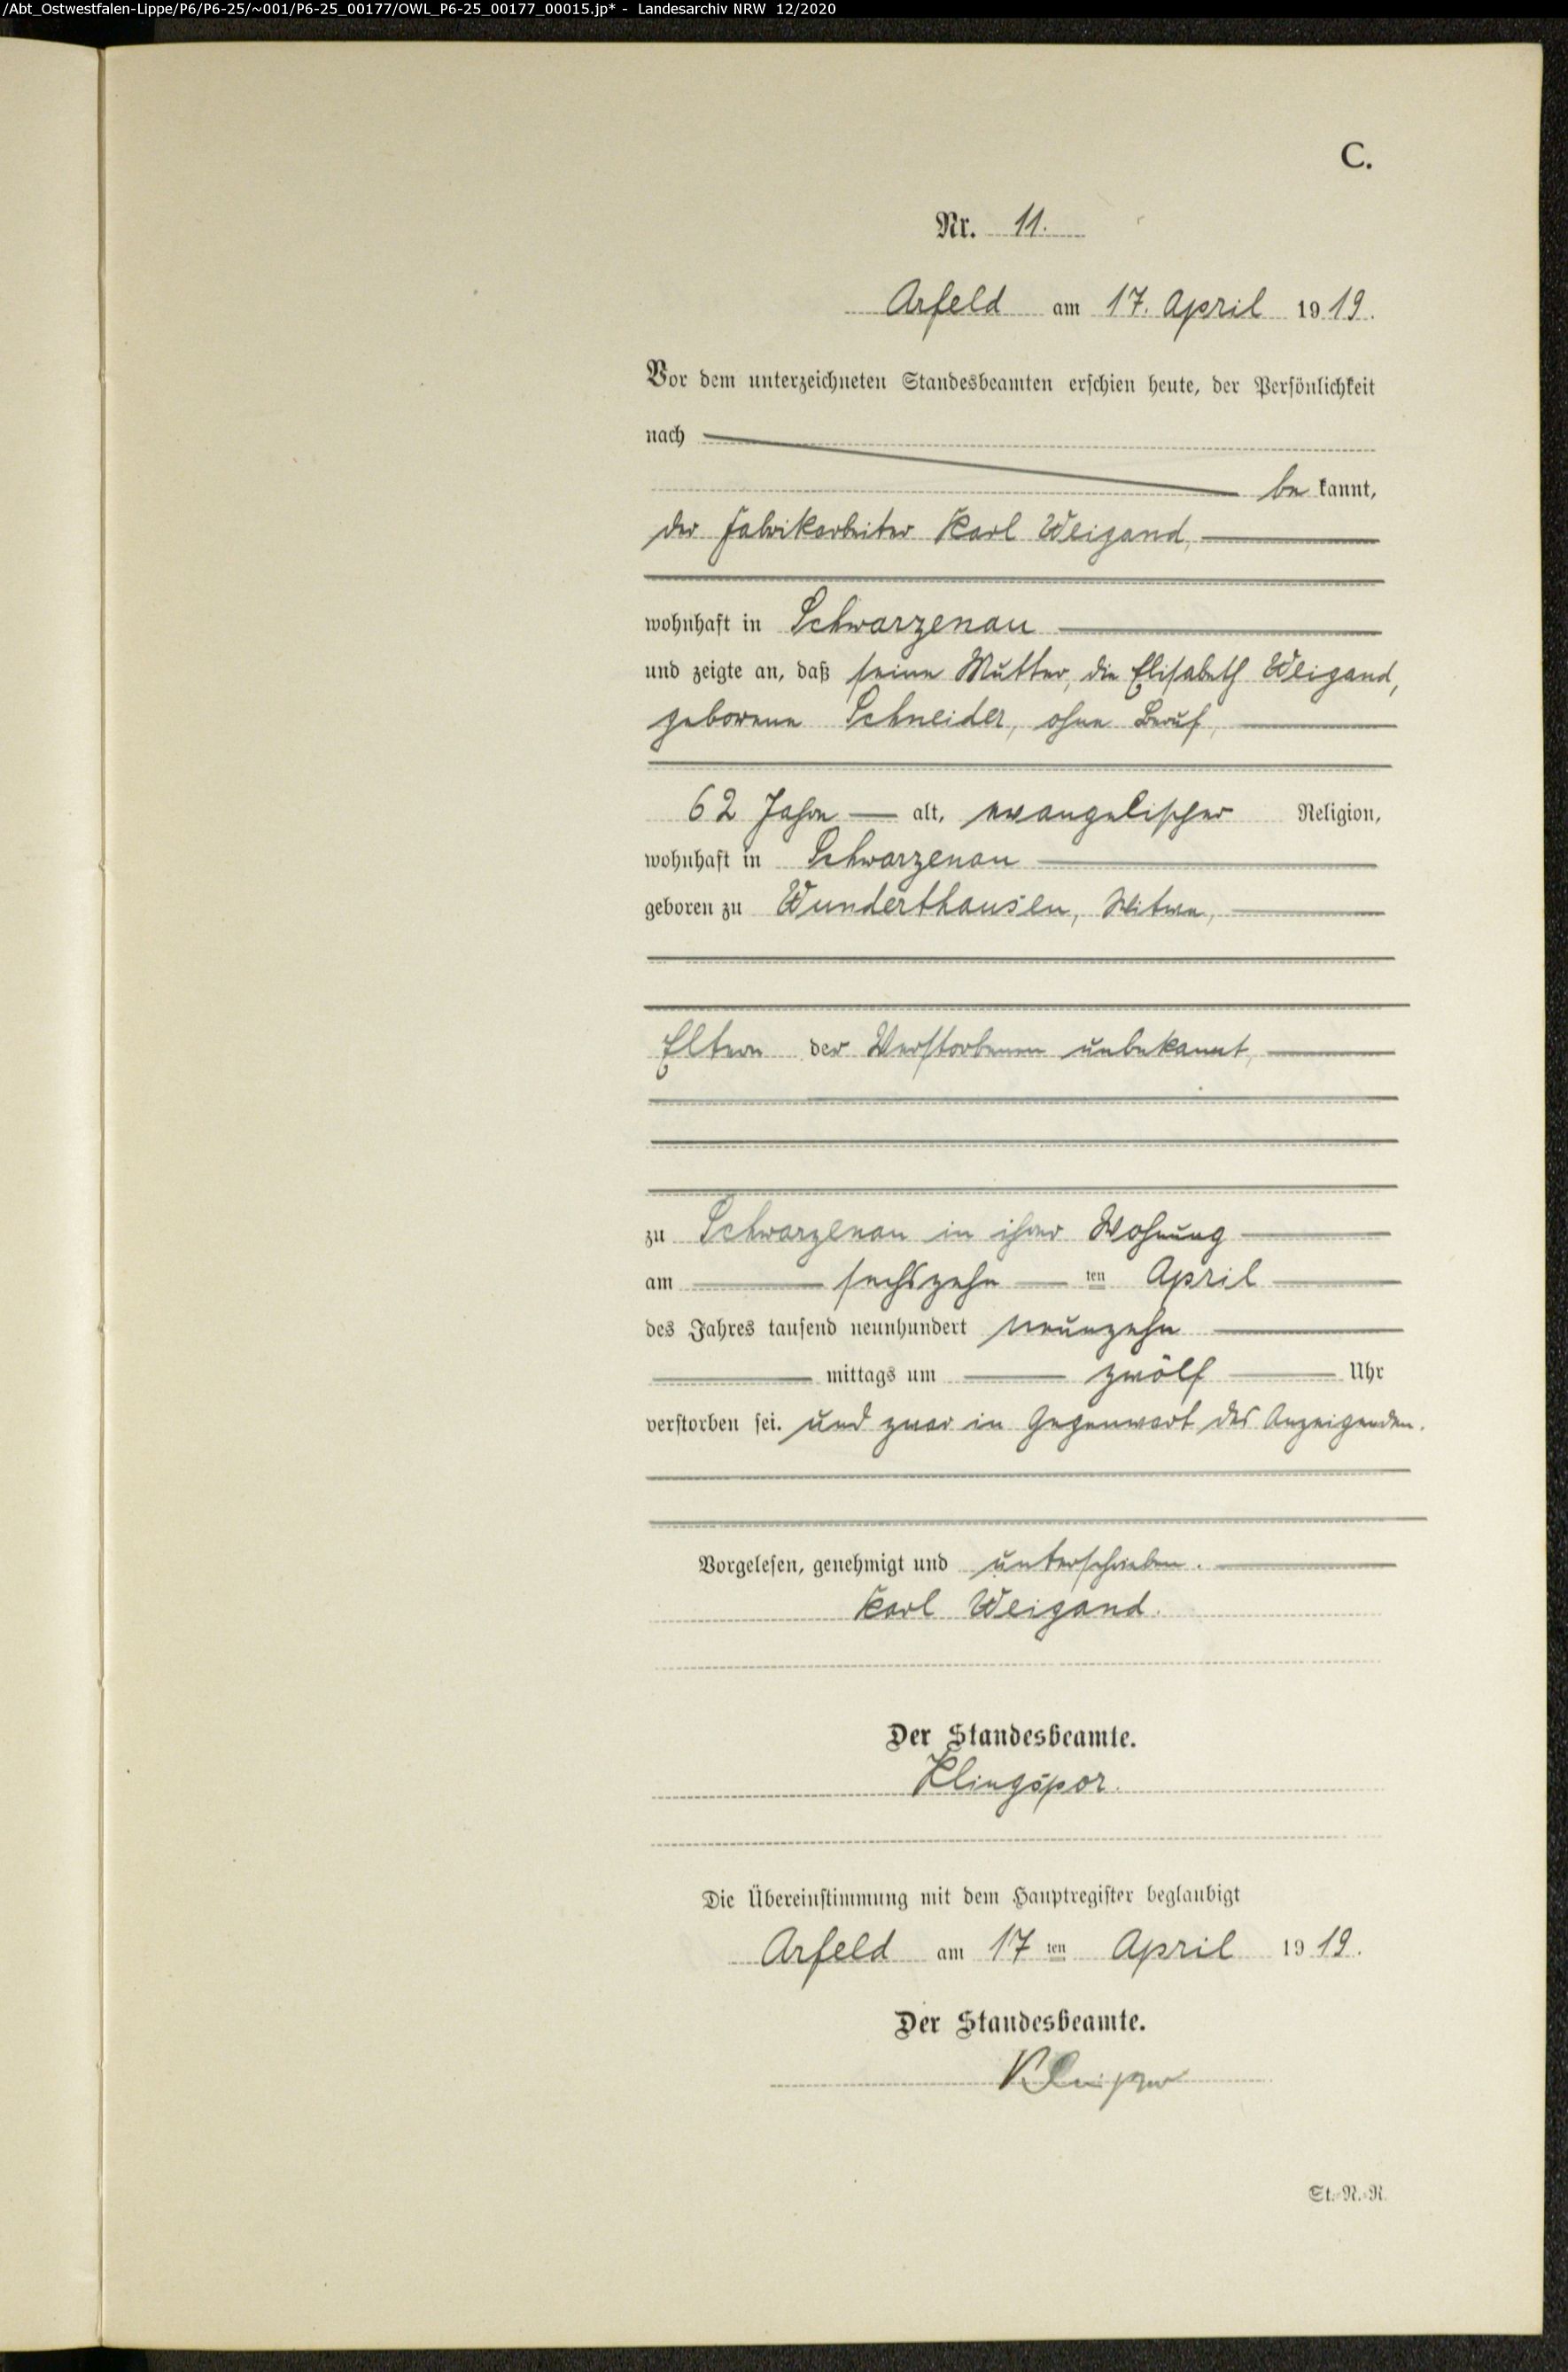 /Abt_Ostwestfalen-Lippe/P6/P6-25/~001/P6-25_00177/OWL_P6-25_00177_00015.jp* - Landesarchiv NRW 12/2020
C.
Nr. 11.
Arfeld am 17. April 1919.
Vor dem unterzeichneten Standesbeamten erschien heute, der Persönlichkeit
nach
be kannt,
der Fabrikarbeiter Karl Weigand,
wohnhaft in Schwarzenau
und zeigte an, daß seine Mutter, die Elisabeth Weigand,
geborene Schneider, ohne Beruf,
62 Jahre alt, evangelischer Religion,
wohnhaft in Schwarzenau
geboren zu Wunderthausen, Witwe,
Eltern der Verstorbenen unbekannt,
zu Schwarzenau in ihrer Wohnung
am sechszehn ten April
des Jahres tausend neunhundert neunzehn
mittags um zwölf Uhr
verstorben sei. und zwar in Gegenwart des Anzeigenden.
Vorgelesen, genehmigt und unterschrieben.
Karl Weigand.
Der Standesbeamte.
Klingspor.
Die Übereinstimmung mit dem Hauptregister beglaubigt
Arfeld am 17 ten April 1919.
Der Standesbeamte.
Klingspor
St.-N.-R.